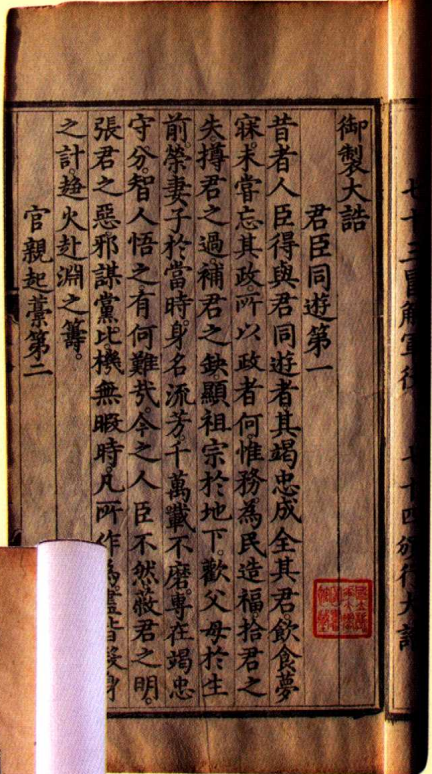 七十三冒解軍役 七十四頒行大誥
御製大誥
君臣同遊第一
昔者人臣得與君同遊者其竭忠成全其君飲食夢
寐。未嘗忘其政。所以政者何。惟務為民造福拾君之
失。撙君之過。補君之缺。顯祖宗於地下。歡父母於生
前。榮妻子於當時。身名流芳。千萬載不磨。專在竭忠
守分。智人悟之有何難哉。今之人臣不然。蔽君之明。
張君之惡。邪謀黨比。機無暇時。凡所作為盡皆殺身
之計。趍火赴淵之籌。
官親起藁第二